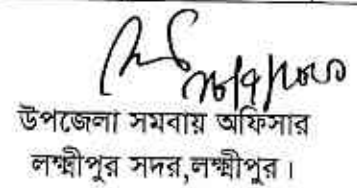 উপজেলা সমবায় অফিসার
লক্ষ্মীপুর সদর,লক্ষ্মীপুর।